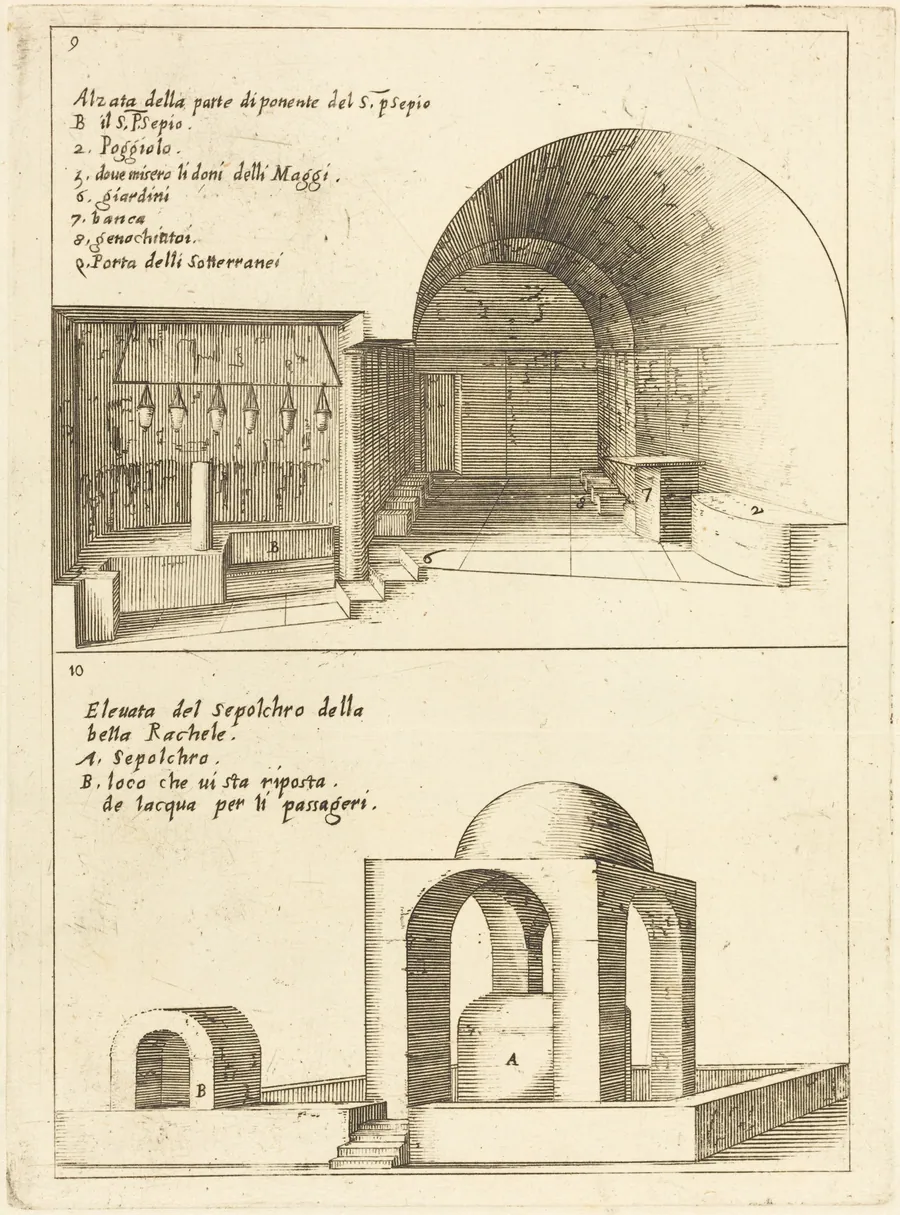 9
Alzata della parte di ponente del S. p̅sepio
B il S. P̅sepio.
2. Poggiolo.
3. doue misero li doni delli Maggi.
6. giardini
7. banca
8. genochiatoi.
9. Porta delli Sotterranei
B
6
8
7
2
10
Eleuata del Sepolchro della
bella Rachele.
A. Sepolchro.
B. loco che ui sta riposta.
de lacqua per li passageri.
A
B